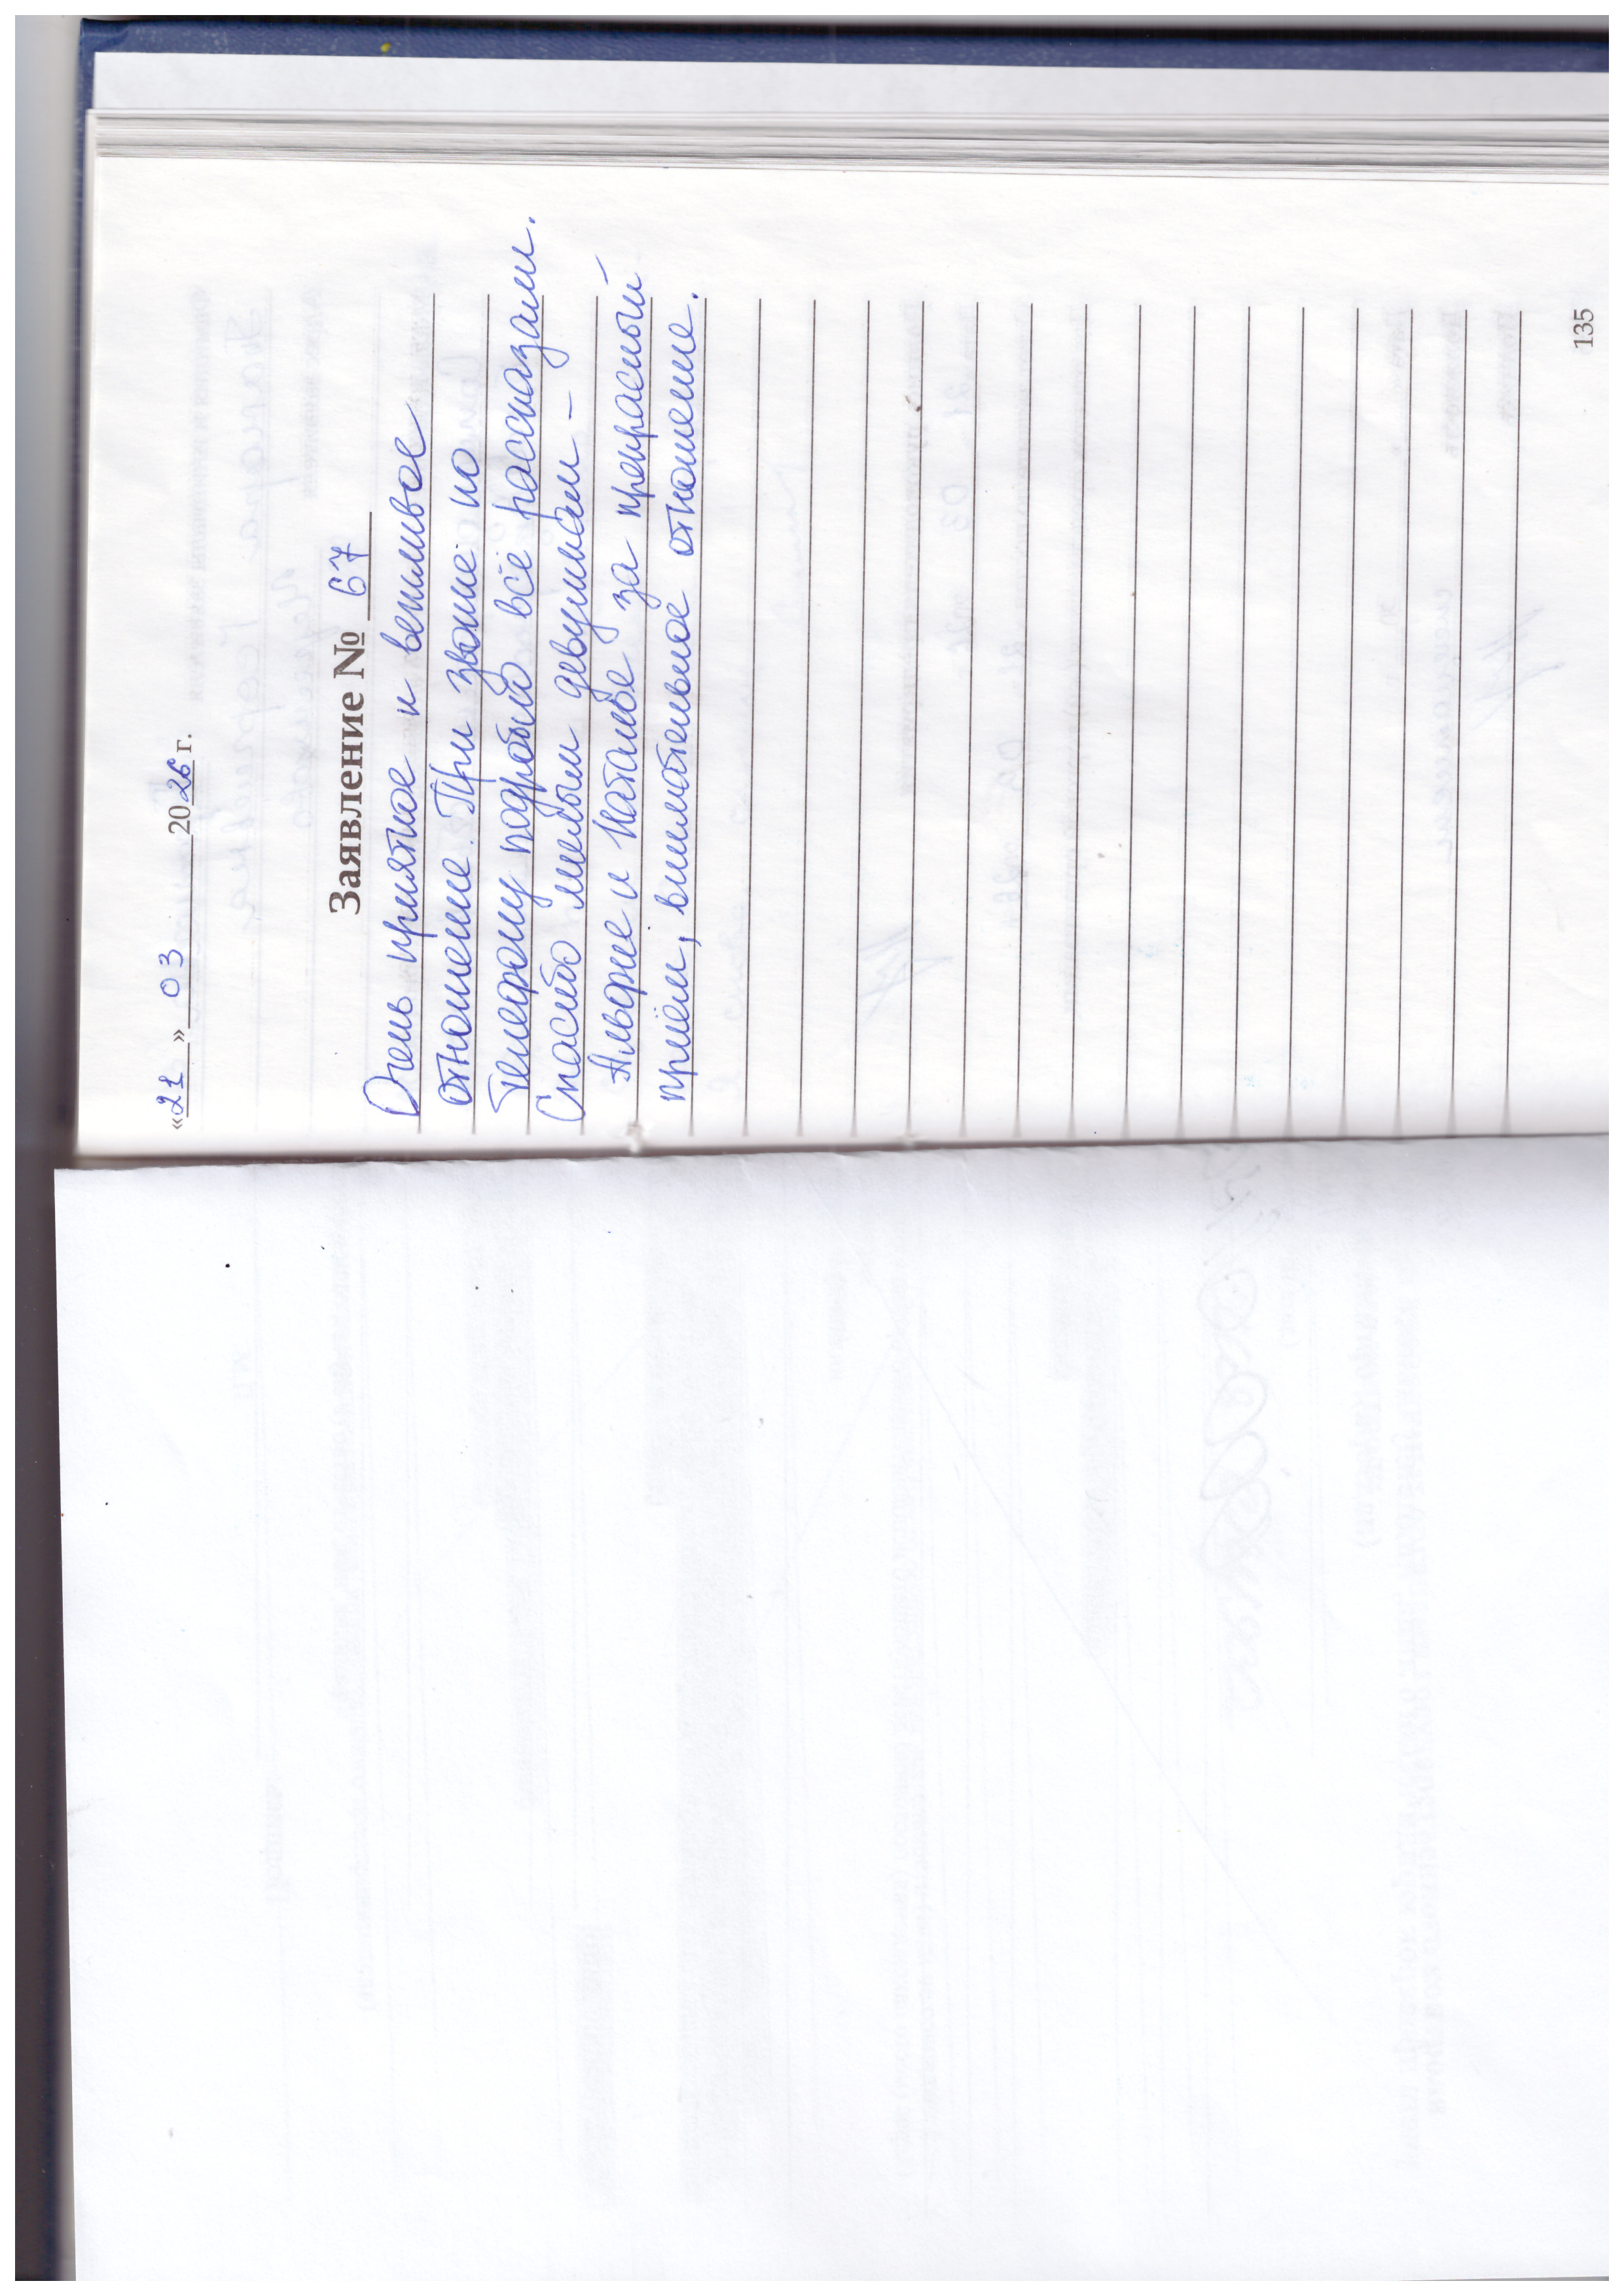 «21» 03 2026 г.
Заявление № 67
Очень приятное и вежливое
отношение. При звонке по
телефону подробно всё рассказали.
Спасибо милым девушкам –
и Наталье за прекрасный
приём, внимательное отношение.
135